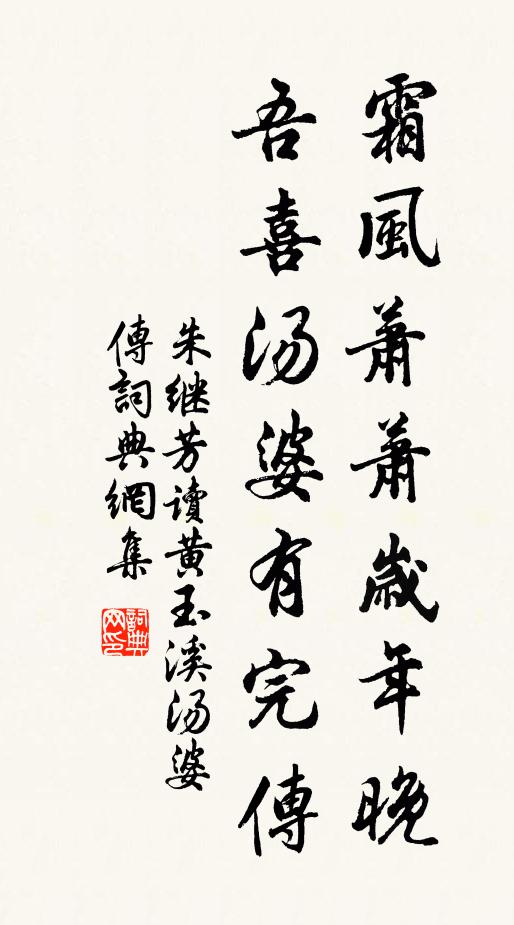 霜風蕭蕭歲年晚
吾喜汤婆有完傳
朱继芳讀黄玉溪汤婆
傳詞典網集
詞典网印